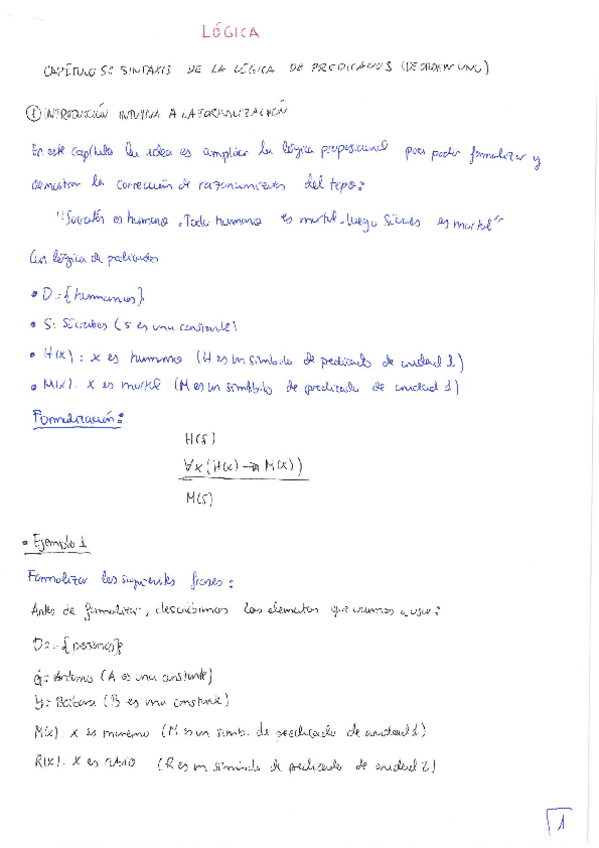 LÓGICA
CAPÍTULO 5: SINTAXIS DE LA LÓGICA DE PREDICADOS (DE ORDEN UNO)
① INTRODUCCIÓN INTUITIVA A LA FORMALIZACIÓN
En este capítulo la idea es ampliar la lógica proposicional para poder formalizar y
demostrar la corrección de razonamientos del tipo:
"Sócrates es humano. Todo humano es mortal. Luego Sócrates es mortal"
Con lógica de predicados
• D = {humanos}
• S: Sócrates (s es una constante)
• H(x): x es humano (H es un símbolo de predicado de aridad 1)
• M(x). x es mortal (M es un símbolo de predicado de aridad 1)
Formalización:
H(s)
∀x (H(x) → M(x))
M(s)
• Ejemplo 1
Formalizar las siguientes frases:
Antes de formalizar, describimos los elementos que vamos a usar:
D = {personas}
a: Antonio (A es una constante)
: Bárbara (B es una constante)
M(x). x es moreno (M es un simb. de predicado de aridad 1)
R(x). x es rubio (R es un símbolo de predicado de aridad 2)
1